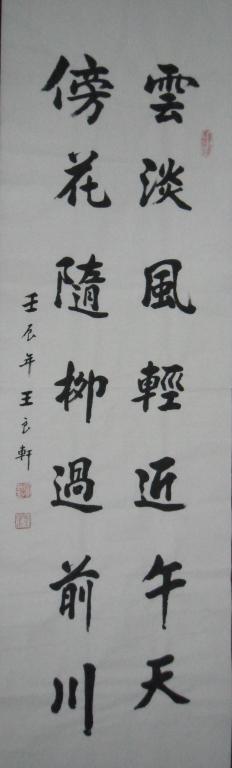 雲淡風輕近午天
傍花隨柳過前川
壬辰年王良軒